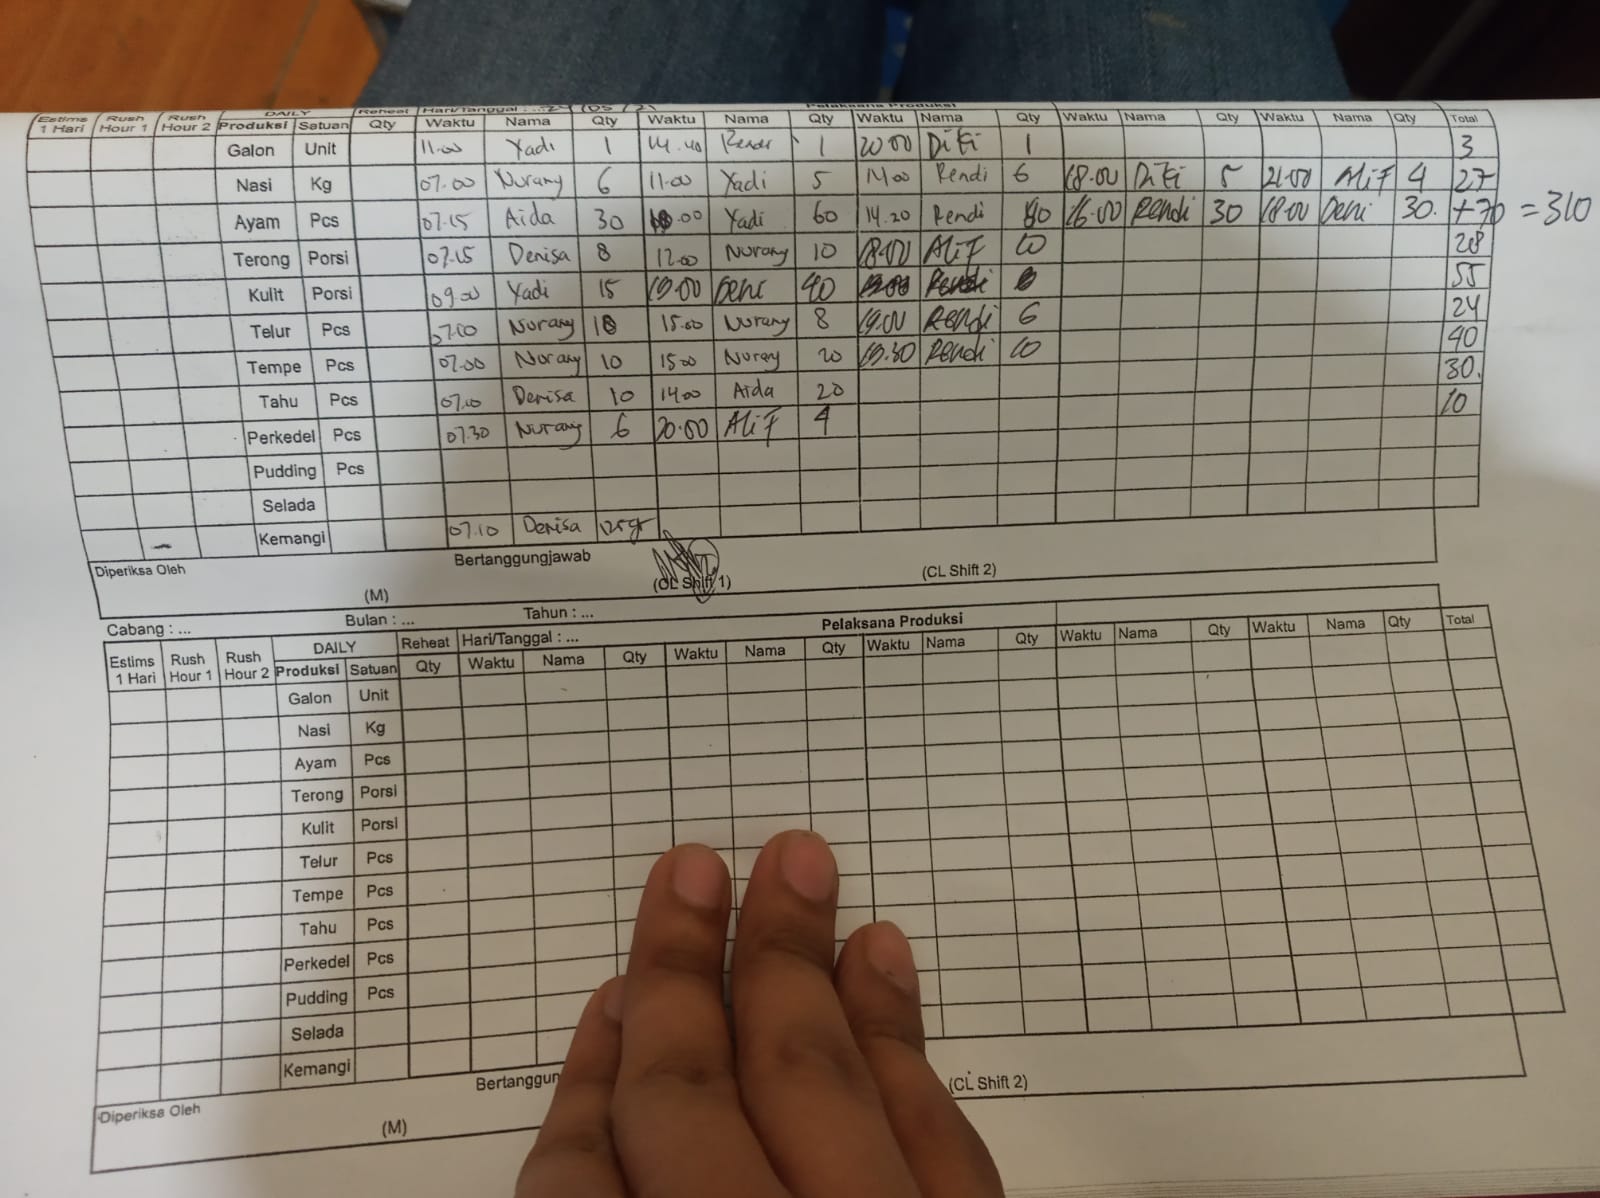 DAILY Reheat Hari/Tanggal : ... 24/05/21 Pelaksana Produksi
Estims 1 Hari Rush Hour 1 Rush Hour 2 Produksi Satuan Qty Waktu Nama Qty Waktu Nama Qty Waktu Nama Qty Waktu Nama Qty Waktu Nama Qty Total
Galon Unit 11.00 Yadi 1 14.40 Rendi 1 20.00 Diki 1 3
Nasi Kg 07.00 Nurany 6 11.00 Yadi 5 14.00 Rendi 6 18.00 Diki 5 21.00 Alif 4 27
Ayam Pcs 07.15 Aida 30 .00 Yadi 60 14.20 Rendi 16.00 Rendi 30 18.00 Deni 30. +70 = 310
Terong Porsi 07.15 Denisa 8 12.00 Nurany 10 18.00 Alif 10 28
Kulit Porsi 09.00 Yadi 15 19.00 Deni 40 55
Telur Pcs 07.00 Nurany 10 15.00 Nurany 8 19.00 Rendi 6 24
Tempe Pcs 07.00 Nurany 10 15.00 Nurany 20 19.30 Rendi 10 40
Tahu Pcs 07.10 Denisa 10 14.00 Aida 20 30.
Perkedel Pcs 07.30 Nurany 6 20.00 Alif 4 10
Pudding Pcs
Selada
Kemangi 07.10 Denisa 125gr
Diperiksa Oleh Bertanggungjawab
(M) (CL Shift 1) (CL Shift 2)
Cabang : ... Bulan : ... Tahun : ...
DAILY Reheat Hari/Tanggal : ... Pelaksana Produksi
Estims 1 Hari Rush Hour 1 Rush Hour 2 Produksi Satuan Qty Waktu Nama Qty Waktu Nama Qty Waktu Nama Qty Waktu Nama Qty Waktu Nama Qty Total
Galon Unit
Nasi Kg
Ayam Pcs
Terong Porsi
Kulit Porsi
Telur Pcs
Tempe Pcs
Tahu Pcs
Perkedel Pcs
Pudding Pcs
Selada
Kemangi
Diperiksa Oleh Bertanggun
(M) (CL Shift 2)